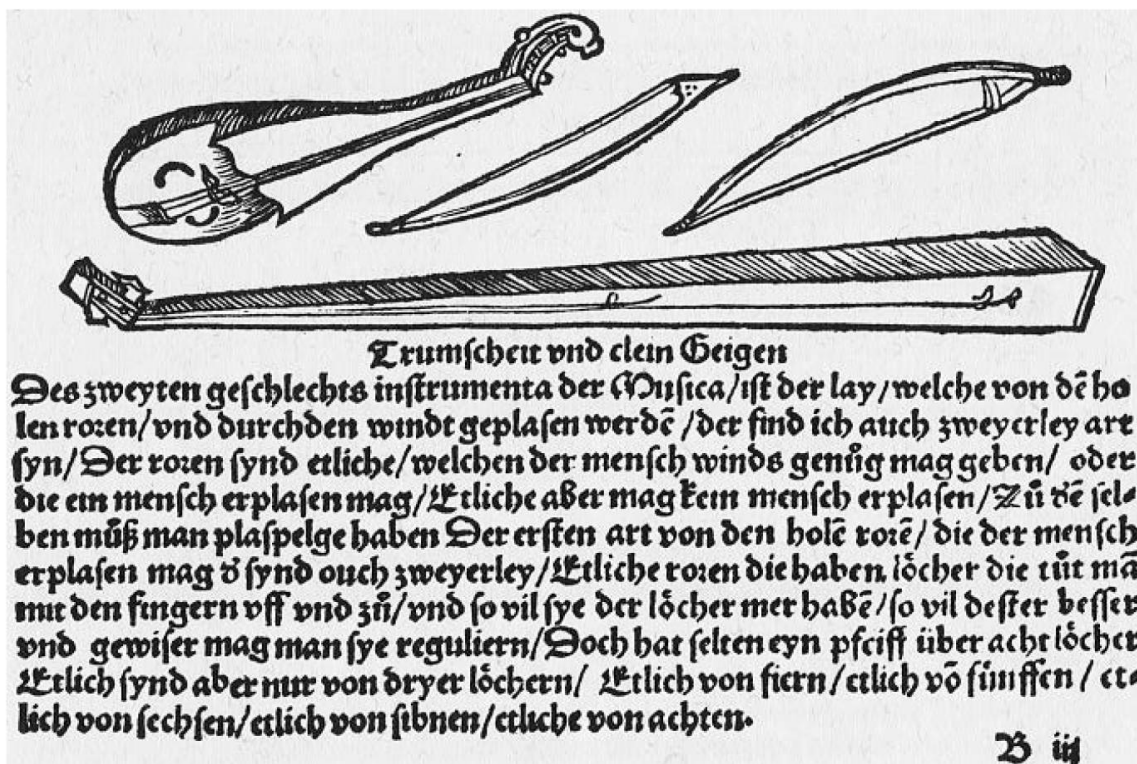 Trumscheit vnd clein Geigen
Des zweyten geschlechts instrumenta der Musica/ist der lay/welche von dē ho
len roren/vnd durchden windt geplasen werdē/der find ich auch zweyerley art
syn/Der roren synd etliche/welchen der mensch winds genůg mag geben/ oder
die ein mensch erplasen mag/Etliche aber mag kein mensch erplasen/Zů dē sel-
ben můß man plaspelge haben Der ersten art von den holē rorē/ die der mensch
erplasen mag d̕ synd ouch zweyerley/Etliche roren die haben löcher die tůt mā
mit den fingern vff vnd zů/vnd so vil sye der löcher mer habē/so vil dester besser
vnd gewiser mag man sye reguliern/Doch hat selten eyn pfeiff über acht löcher
Etlich synd aber nur von dryer löchern/ Etlich von fiern/etlich vō fünffen/ et-
lich von sechsen/etlich von sibnen/etliche von achten.
B iij